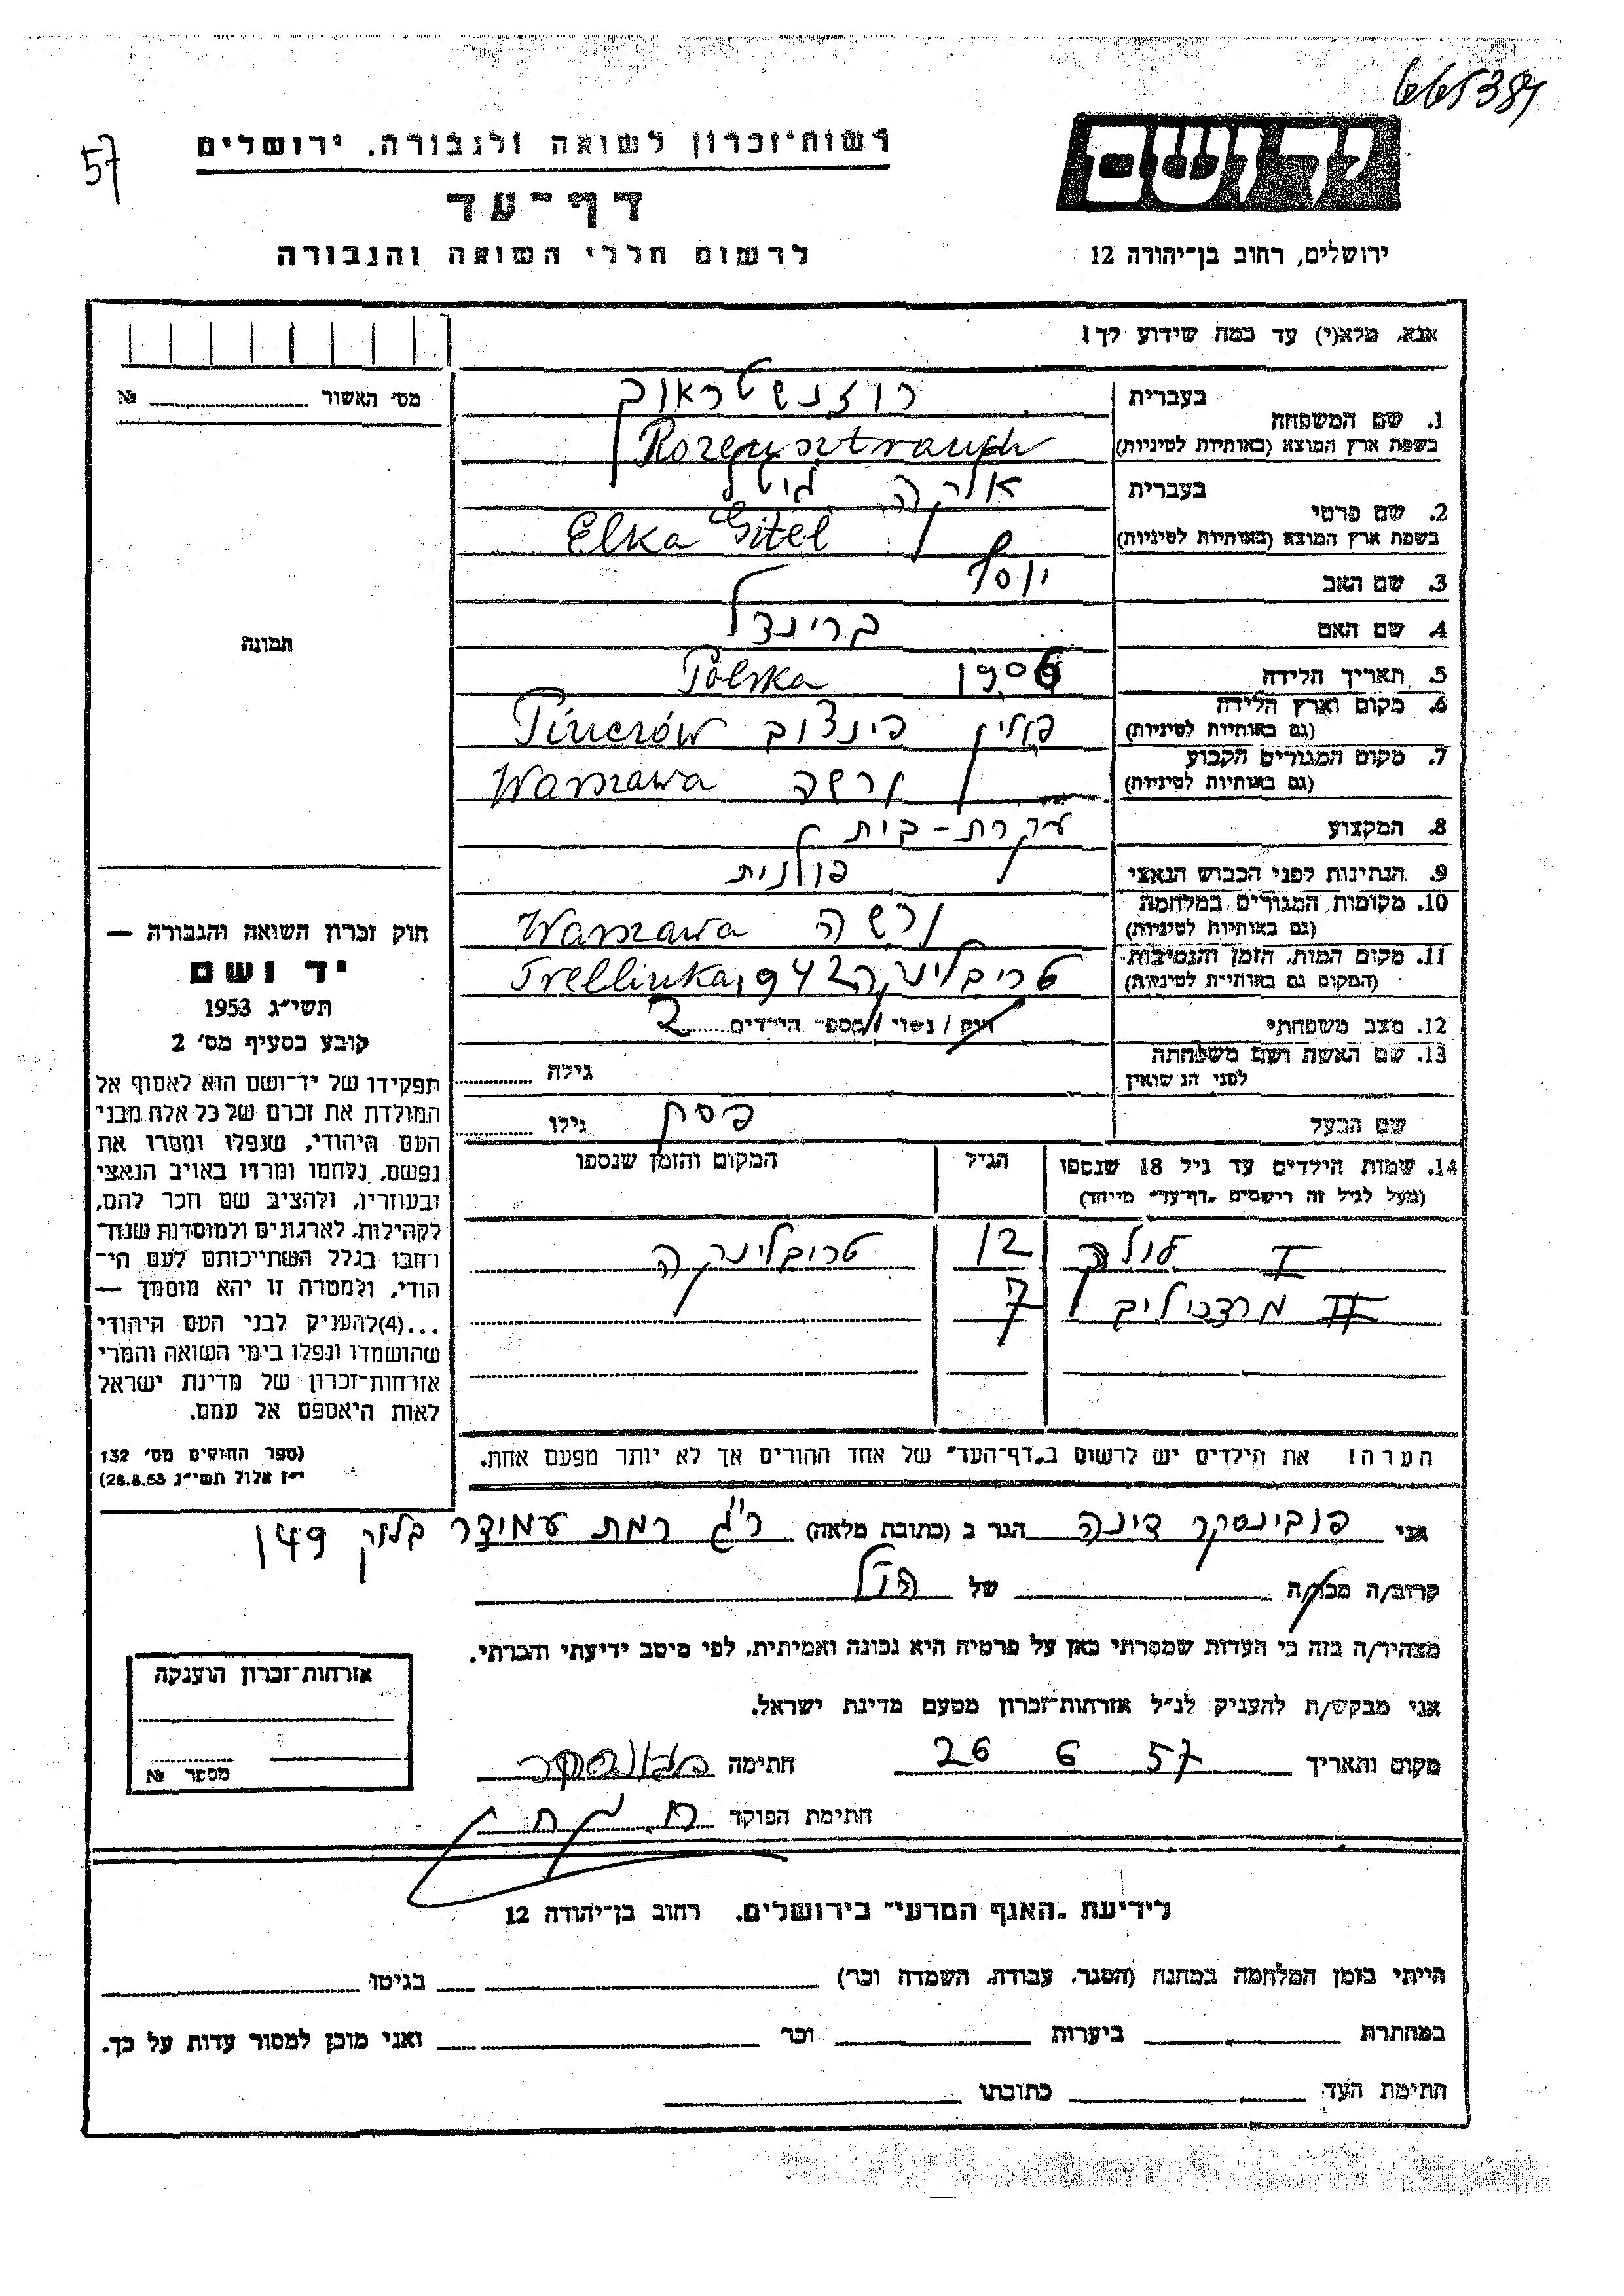 665389
57
רשות־זכרון לשואה ולגבורה, ירושלים
דף־עד
לרשום חללי השואה והגבורה
יד ושם
ירושלים, רחוב בן־יהודה 12
אנא, מלא(י) עד כמה שידוע לך!
מס׳ האשור № 
תמונה
1. שם המשפחה בעברית רוזנשטראוך
בשפת ארץ המוצא (באותיות לטיניות) Rozensztrauch
2. שם פרטי בעברית אלקה גיטל
בשפת ארץ המוצא (באותיות לטיניות) Elka Gitel
3. שם האב יוסף
4. שם האם ברינדל
5. תאריך הלידה 1906 Polska
6. מקום וארץ הלידה (גם באותיות לטיניות) פולין פינצוב Pińczów
7. מקום המגורים הקבוע (גם באותיות לטיניות) ורשה Warszawa
8. המקצוע עקרת-בית
9. הנתינות לפני הכבוש הנאצי פולנית
10. מקומות המגורים במלחמה (גם באותיות לטיניות) ורשה Warszawa
11. מקום המות, הזמן והנסיבות (המקום גם באותיות לטיניות) טריבלינקה 1942 Treblinka
12. מצב משפחתי רוק / נשוי / מספר הילדים 2
13. שם האשה ושם משפחתה לפני הנשואין גילה
שם הבעל פסח גילו
14. שמות הילדים עד גיל 18 שנספו הגיל המקום והזמן שנספו
(מעל לגיל זה רישמים „דף־עד” מייחד)
I 12 טריבלינקה
II 7
הערה! את הילדים יש לרשום ב„דף־העד” של אחד ההורים אך לא יותר מפעם אחת.
חוק זכרון השואה והגבורה —
יד ושם
תשי״ג 1953
קובע בסעיף מס׳ 2
תפקידו של יד־ושם הוא לאסוף אל
המולדת את זכרם של כל אלה מבני
העם היהודי, שנפלו ומסרו את
נפשם, נלחמו ומרדו באויב הנאצי
ובעוזריו, ולהציב שם וזכר להם,
לקהילות, לארגונים ולמוסדות שנח־
רחבו בגלל השתייכותם לעם הי־
הודי, ולמטרה זו יהא מוסמך —
...(4)להעניק לבני העם היהודי
שהושמדו ונפלו בימי השואה והמרי
אזרחות־זכרון של מדינת ישראל
לאות היאספם אל עמם.
(ספר החוקים מס׳ 132
י״ז אלול תשי״ג 26.8.53)
אני דינה הגר ב (כתובת מלאה) ר״ג רמת עמידר בלוק 149
קרוב/ה מכר/ה של הנ״ל
מצהיר/ה בזה כי העדות שמסרתי כאן על פרטיה היא נכונה ואמיתית, לפי מיטב ידיעתי והכרתי.
אני מבקש/ת להעניק לנ״ל אזרחות־זכרון מטעם מדינת ישראל.
מקום ותאריך 26 6 57 חתימה
חתימת הפוקד
אזרחות־זכרון הוענקה
מספר №
לידיעת „האגף המדעי” בירושלים. רחוב בן־יהודה 12
הייתי בזמן המלחמה במחנה (הסגר, עבודה, השמדה וכו׳) בגיטו
במחתרת ביערות וכו׳ ואני מוכן למסור עדות על כך.
חתימת העד כתובתו